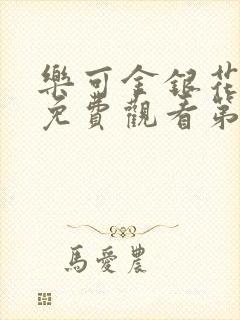 樂可金銀花
免費觀看第
馬愛農